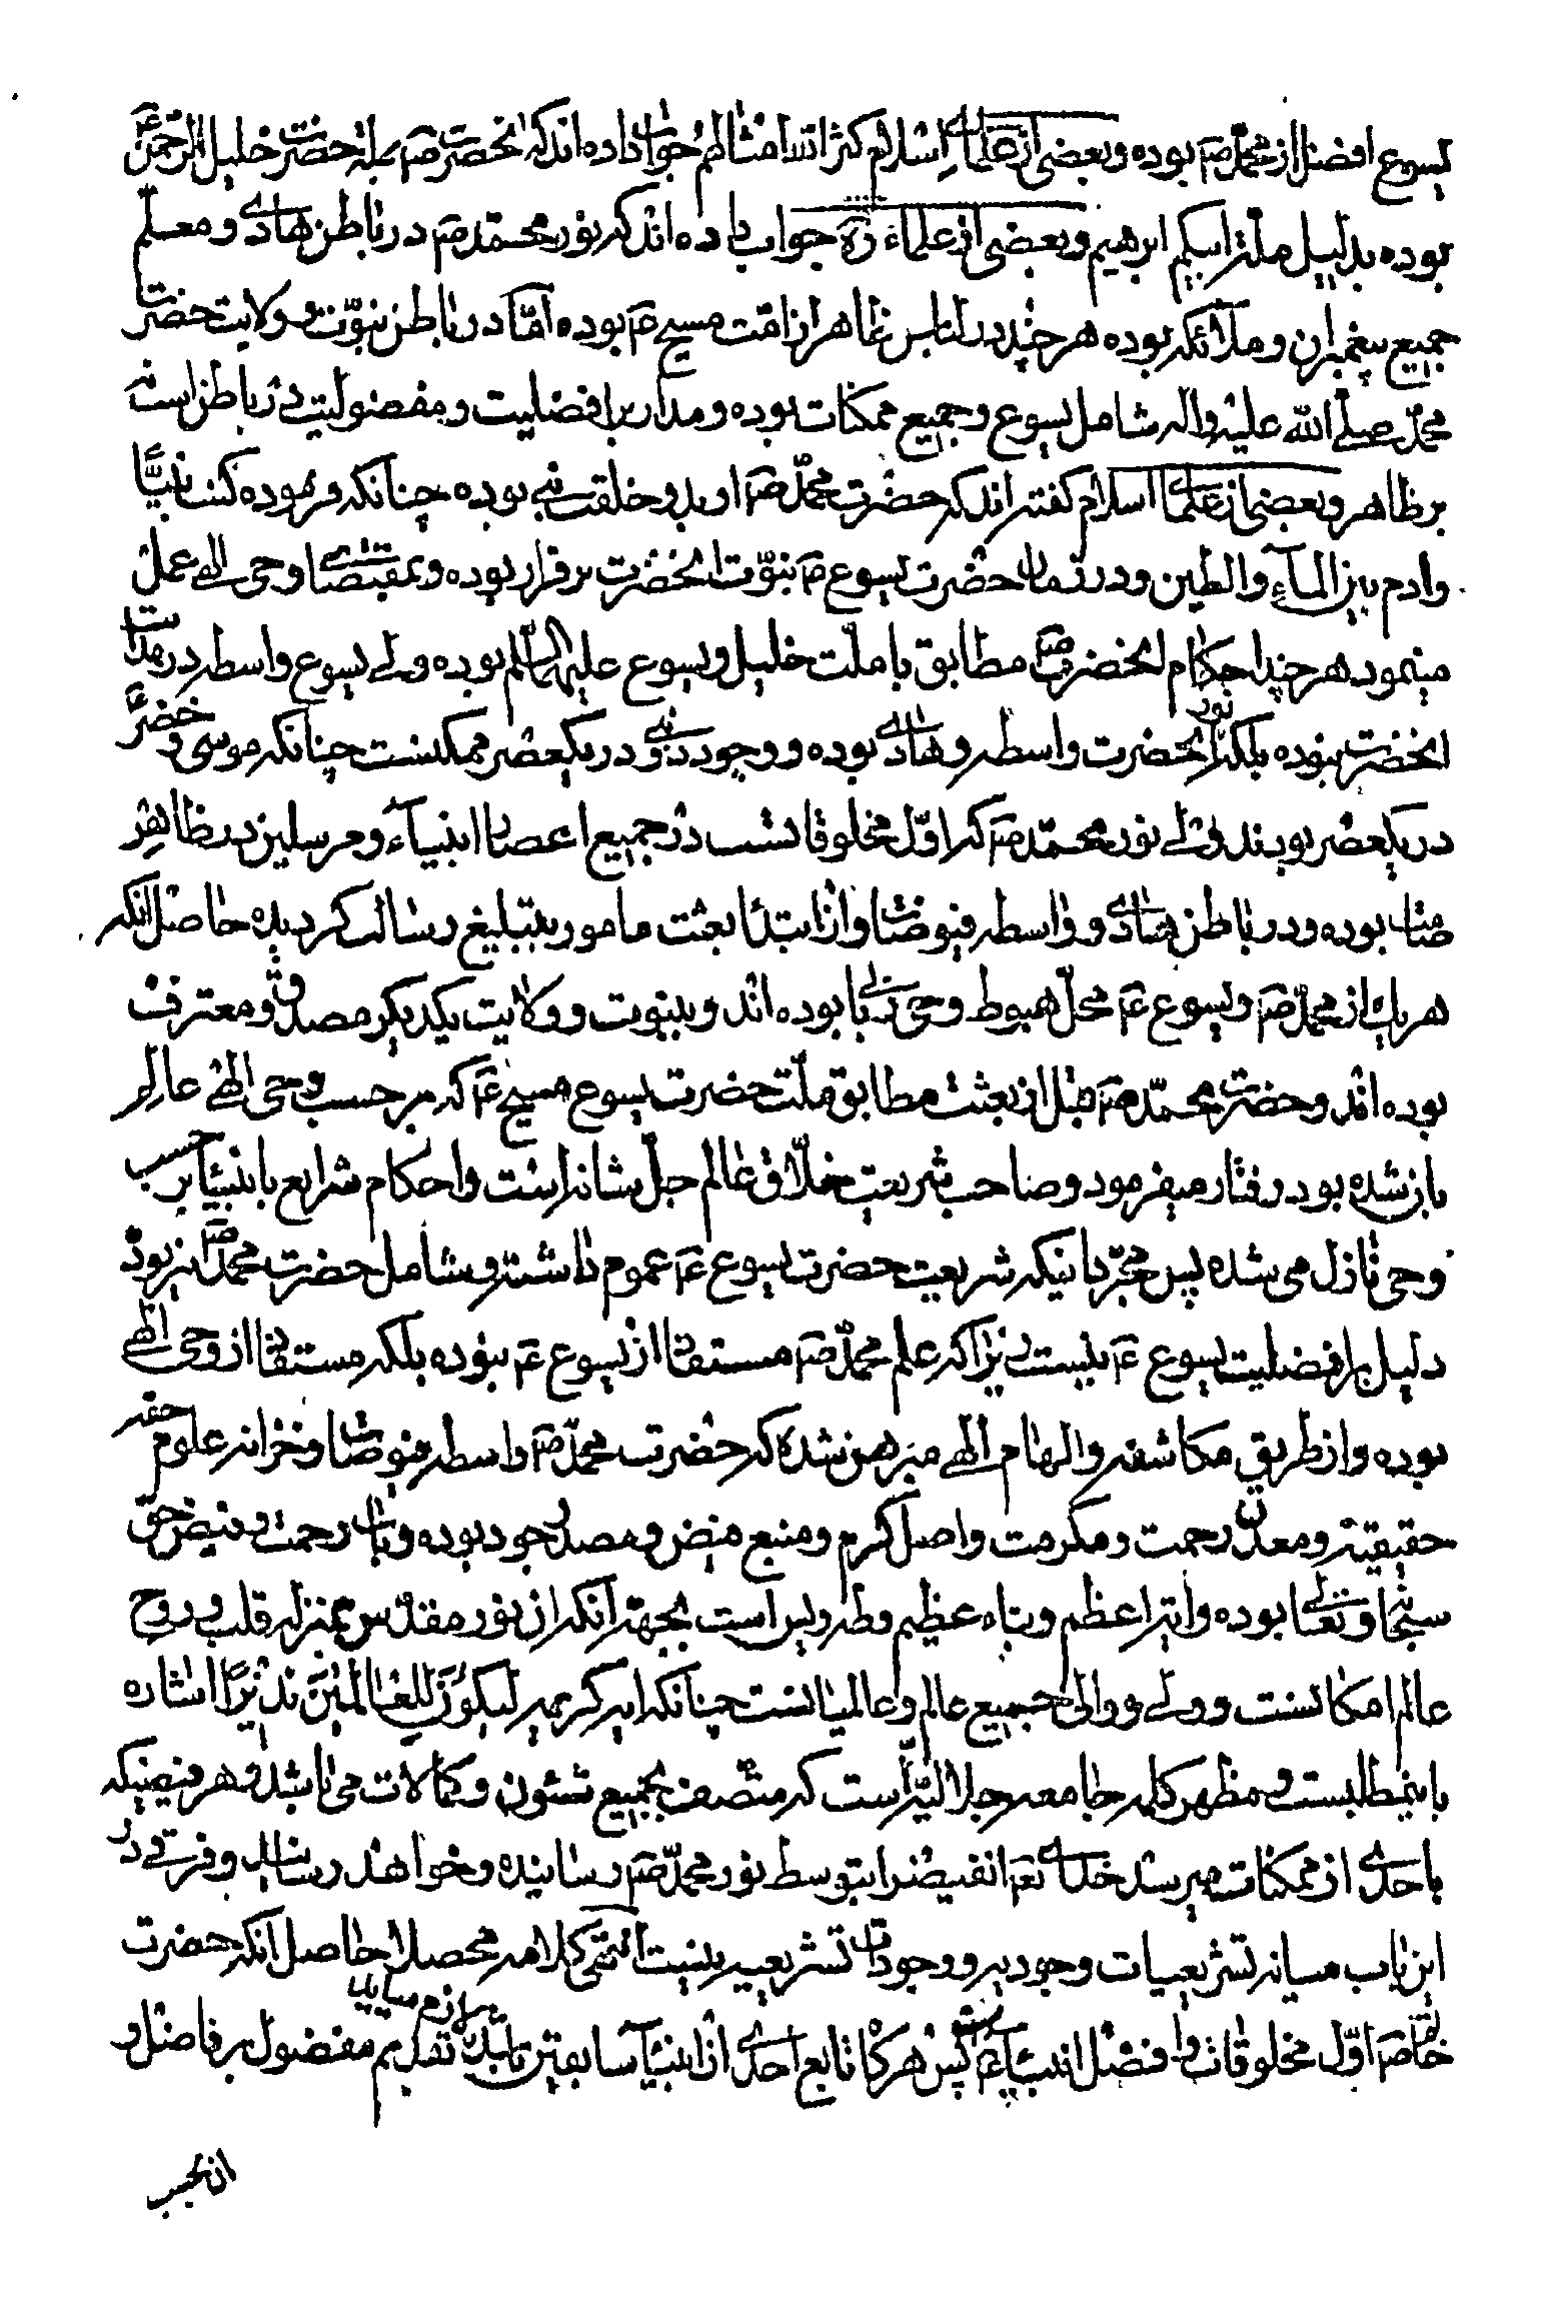 یسوع افضل از محمّد صم بوده و بعضی از علمای اسلام کثر الله امثالهم جواب داده اند که انحضرت صم بملة حضرت خلیل الرحمن ع
بوده بدلیل ملّة ابیکم ابرهیم و بعضی از علماء ره جواب داده اند که نور محمّد صم در باطن هادی و معلّم
جمیع پیغمبران و ملائکه بوده هر چند در لباس ظاهر از امّت مسیح ع بوده امّا در باطن نبوّت و ولایت حضرت
محمّد صلّی الله علیه واله شامل یسوع و جمیع ممکنات بوده و مدار بر افضلیت و مفضولیت در باطن است نه
بر ظاهر و بعضی از علمای اسلام گفته اند که حضرت محمّد صم از بدو خلقت نبی بوده چنانکه فرموده کنت نبیًّا
وادم بین المآء والطین و در زمان حضرت یسوع ع نبوّت انحضرت برقرار بوده و بمقتضای وحی الهی عمل
مینمود هر چند احکام انحضرت صم مطابق با ملّت خلیل و یسوع علیهما السّلم بوده ولی یسوع واسطه در هدایت
انحضرت نبوده بلکه نور انحضرت واسطه و هادی بوده و وجود دو نبی در یکعصر ممکنست چنانکه موسی و خضر ع
در یکعصر بودند ولی نور محمّد صم که اوّل مخلوقاتست در جمیع اعصار با انبیآء و مرسلین در ظاهر
صامت بوده و در باطن هادی و واسطه فیوضات و از ابتدا بعثت مامور بتبلیغ رسالت گردیده حاصل آنکه
هر یک از محمّد صم و یسوع ع محلّ هبوط وحی ربّانی بوده اند و بنبوت و ولایت یکدیگر مصدق و معترف
بوده اند و حضرت محمّد صم قبل از بعثت مطابق ملّت حضرت یسوع مسیح ع که بر حسب وحی الهی عالم
بان شده بود رفتار میفرمود و صاحب شریعت خلّاق عالم جلّ شانه است و احکام شرایع بانبیا بر حسب
وحی نازل می شده پس مجرّد اینکه شریعت حضرت یسوع ع عموم داشته و شامل حضرت محمّد صم نیز بود
دلیل بر افضلیت یسوع ع نیست زیرا که علم محمّد صم مستفاد از یسوع ع نبوده بلکه مستفاد از وحی الهی
بوده و از طریق مکاشفه و الهام الهی مبرهن شده که حضرت محمّد صم واسطه فیوضات و خزانه علوم حقه
حقیقیّه و معدن رحمت و مکرمت و اصل کرم و منبع فیض و مصدر جود بوده و باب رحمت و فیض حق
سبحانه و تعالی بوده و ایة اعظم و نباء عظیم وطه ویس است بجهة آنکه ان نور مقدّس بمنزله قلب و روح
عالم امکانست و ولی و والی جمیع عالم و عالمیانست چنانکه ایه کریمه لیکون للعالمین نذیرًا اشاره
باینمطلبست و مظهر کلیه جامعه جلالیّه است که متّصف بجمیع شئون و کمالات می باشد و هر فیضیکه
باحدی از ممکنات میرسد خدای تعم انفیض را بتوسط نور محمّد صم رسانیده و خواهد رسانید و فرقی در
این باب میانه تشریعیات وجودیه و وجودات تشریعیه نیست انتهی کلامه محصلا حاصل انکه حضرت
خاتم صم اوّل مخلوقات و افضل انبیاء ع است پس هر گاه تابع احدی از انبیآء سابقین باشد لازم میاید تقدیم مفضول بر فاضل و